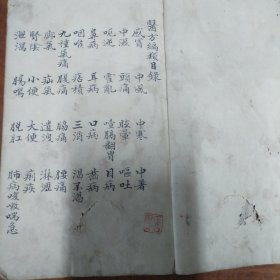 醫方編類目錄
感冒 中風 中寒 中暑
中濕 頭痛 眩暈 嘔吐
呃逆 霍亂 噎膈翻胃
鼻病 耳病 口病 目病
咽喉 痞積 三消 齒病
九種氣痛 腹痛 脇痛 腰痛
腳氣 疝氣 遺溲 淋濁
腎陰 小便 大便 痢疾
泄瀉 腸 脫肛 肺病咳嗽喘急